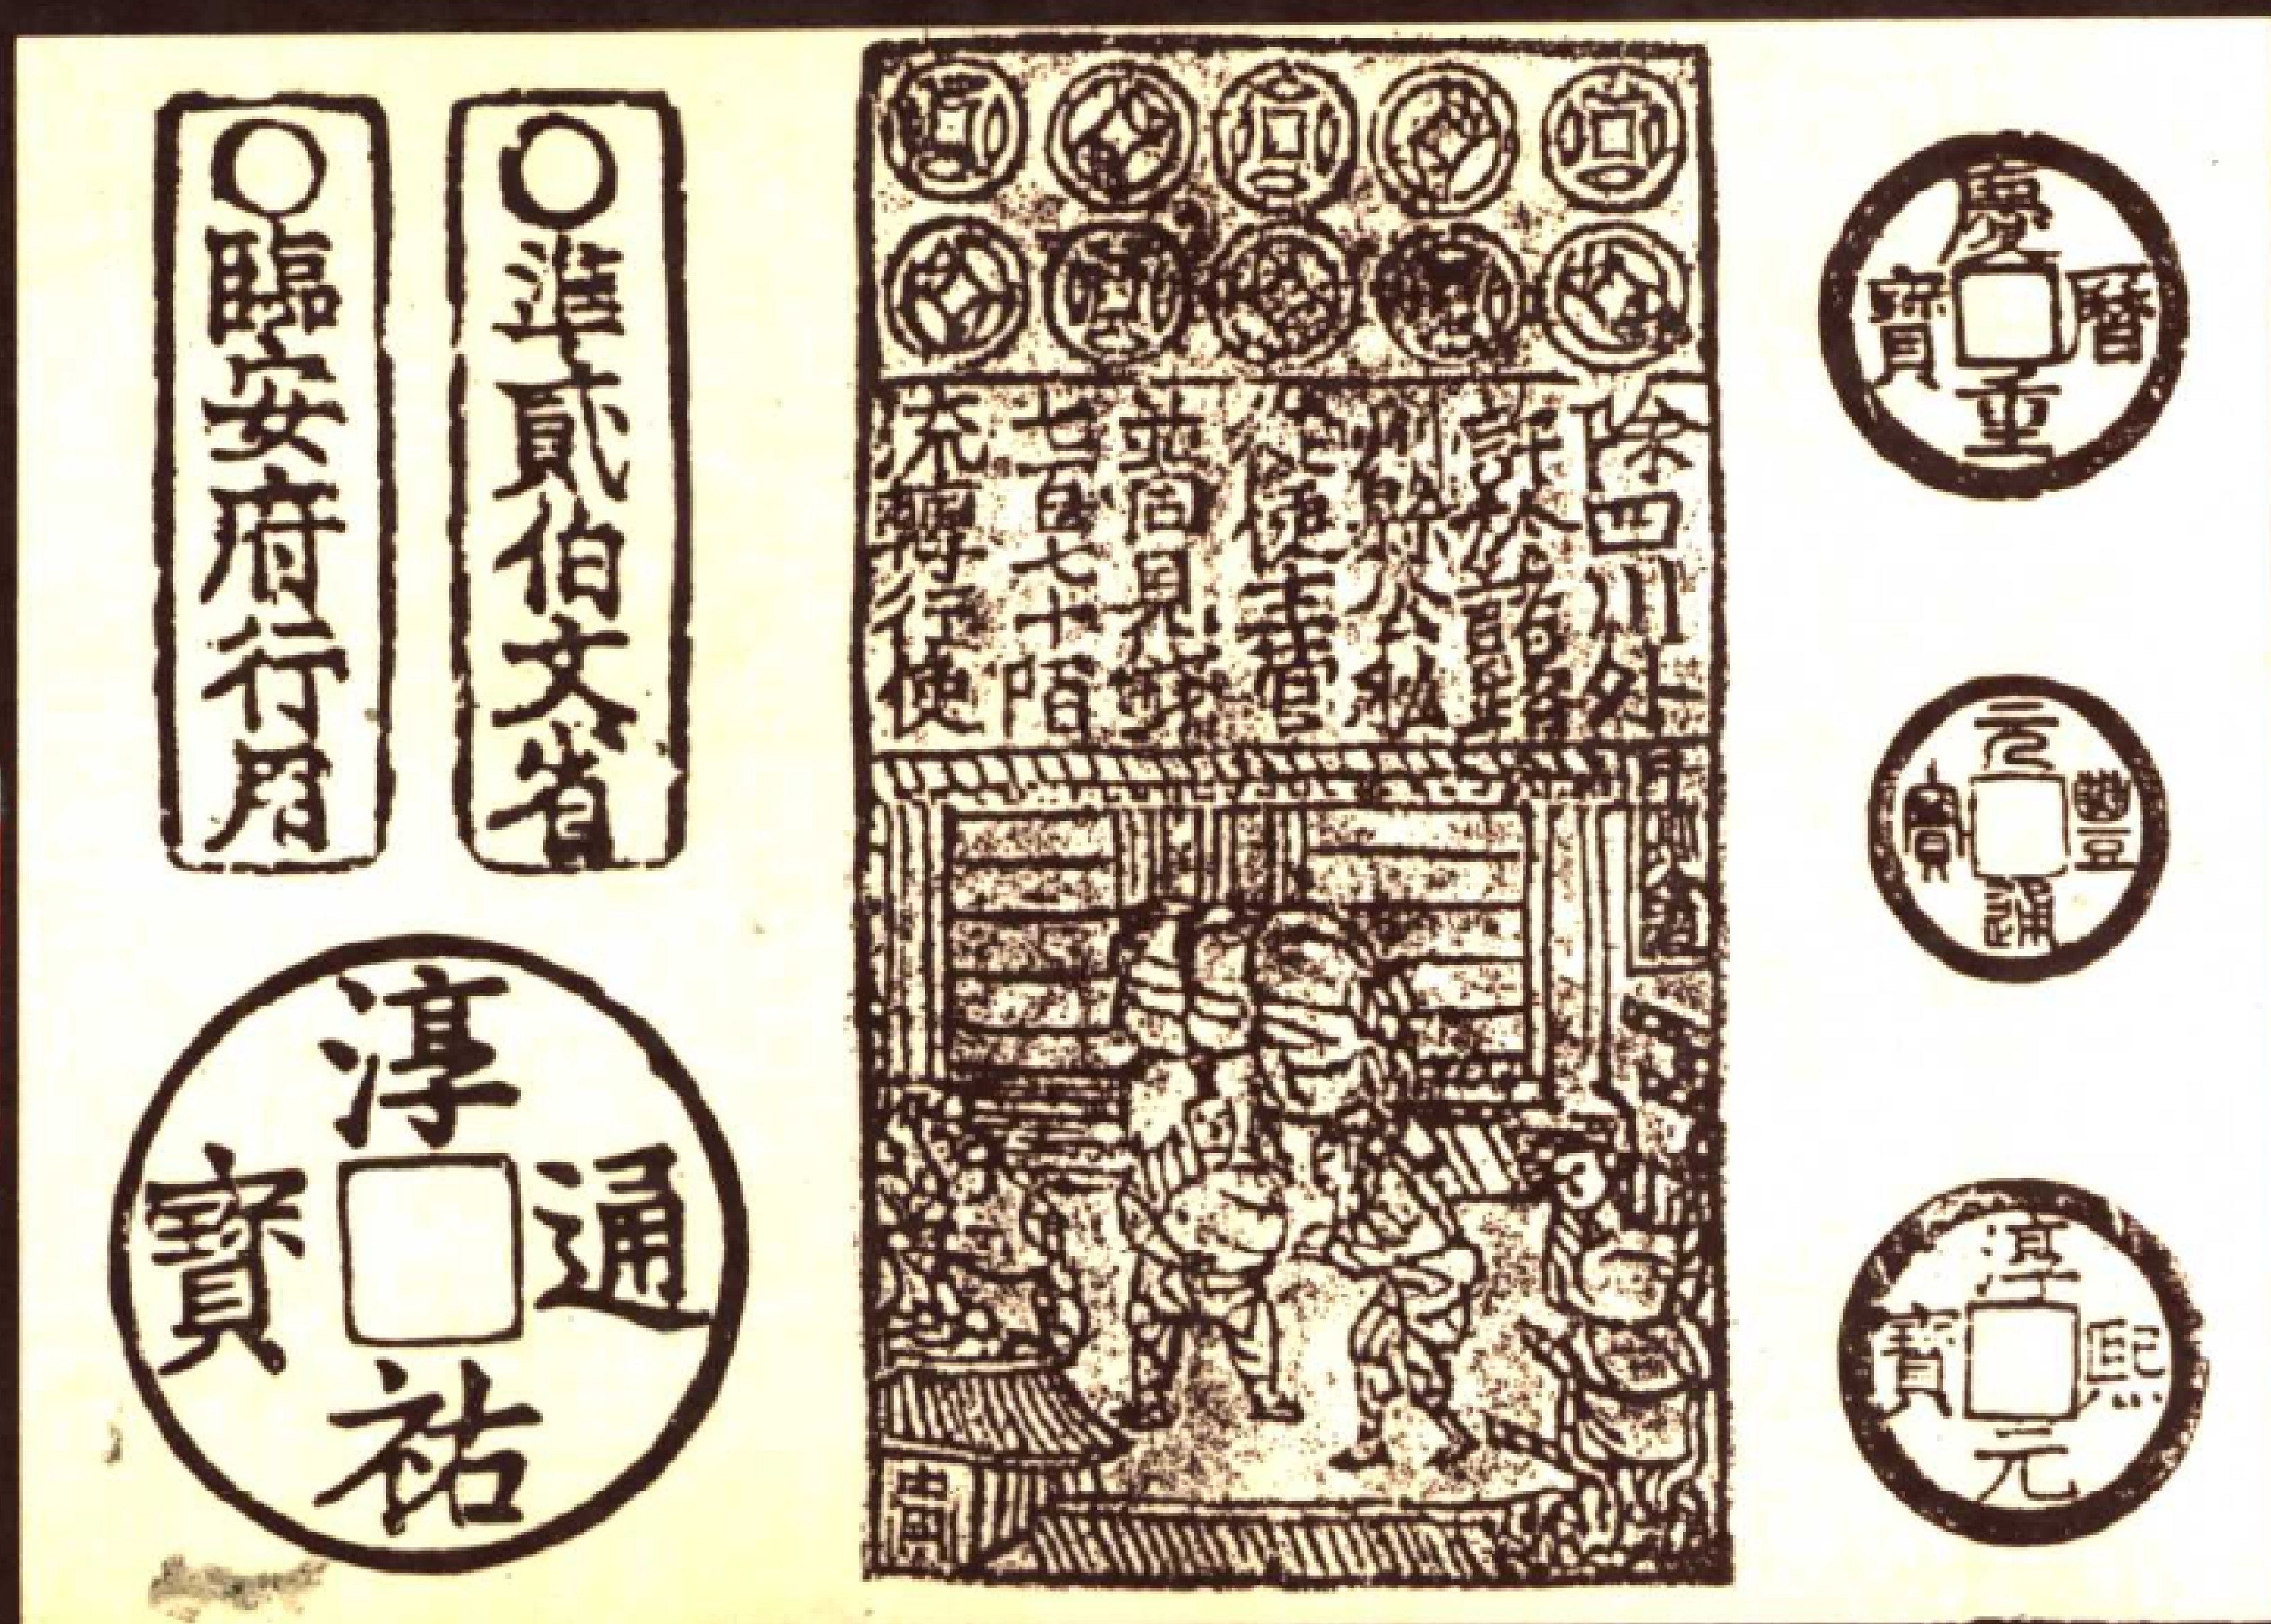 準貳伯文省
臨安府行用
淳祐通寶
除四川外
許於諸路
州縣公私
從便主管
並同見錢
七百七十陌
流轉行使
慶曆重寶
元豐通寶
淳熙元寶